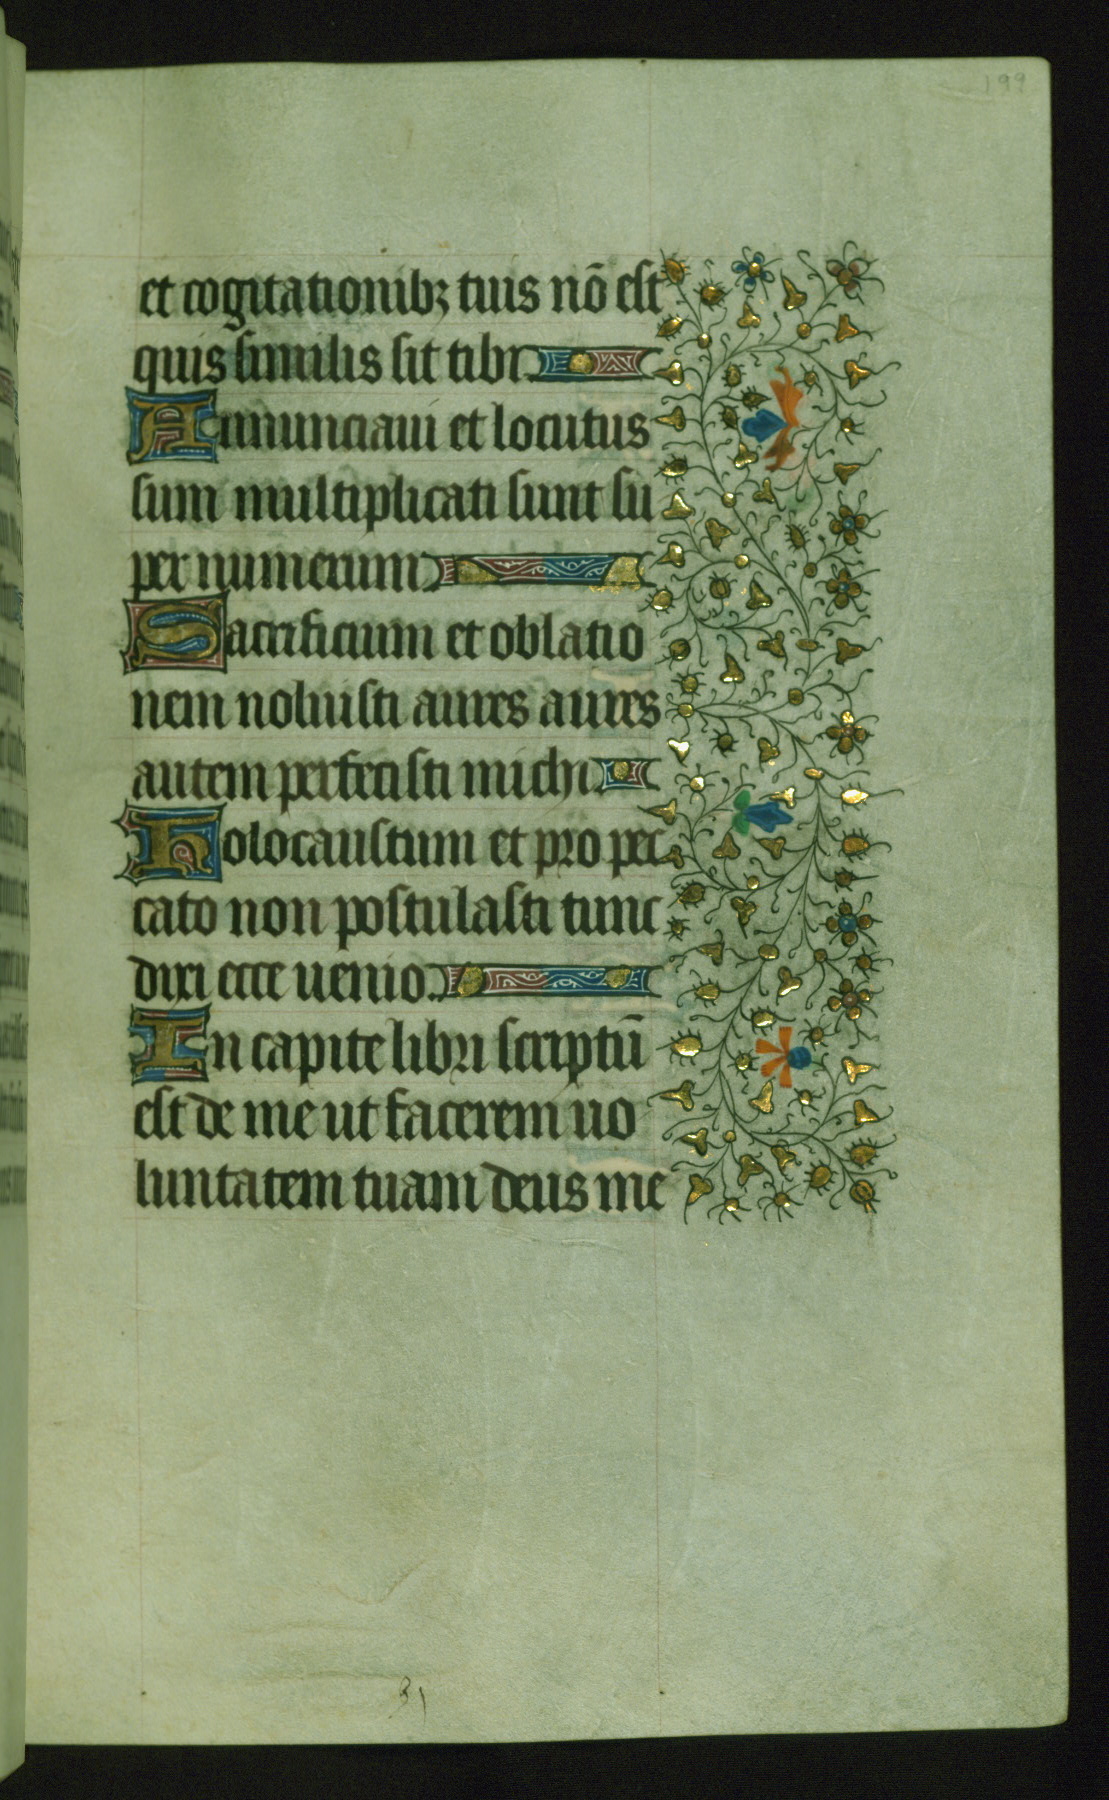 199
et cogitationibꝫ tuis nō est
quis similis sit tibi
Annunciaui et locutus
sum multiplicati sunt su
per numerum
Sacrificium et oblatio
nem noluisti aures aures
autem perfecisti michi
Holocaustum et pro pec
cato non postulasti tunc
dixi ecce uenio.
In capite libri scriptū
est de me ut facerem uo
luntatem tuam deus me